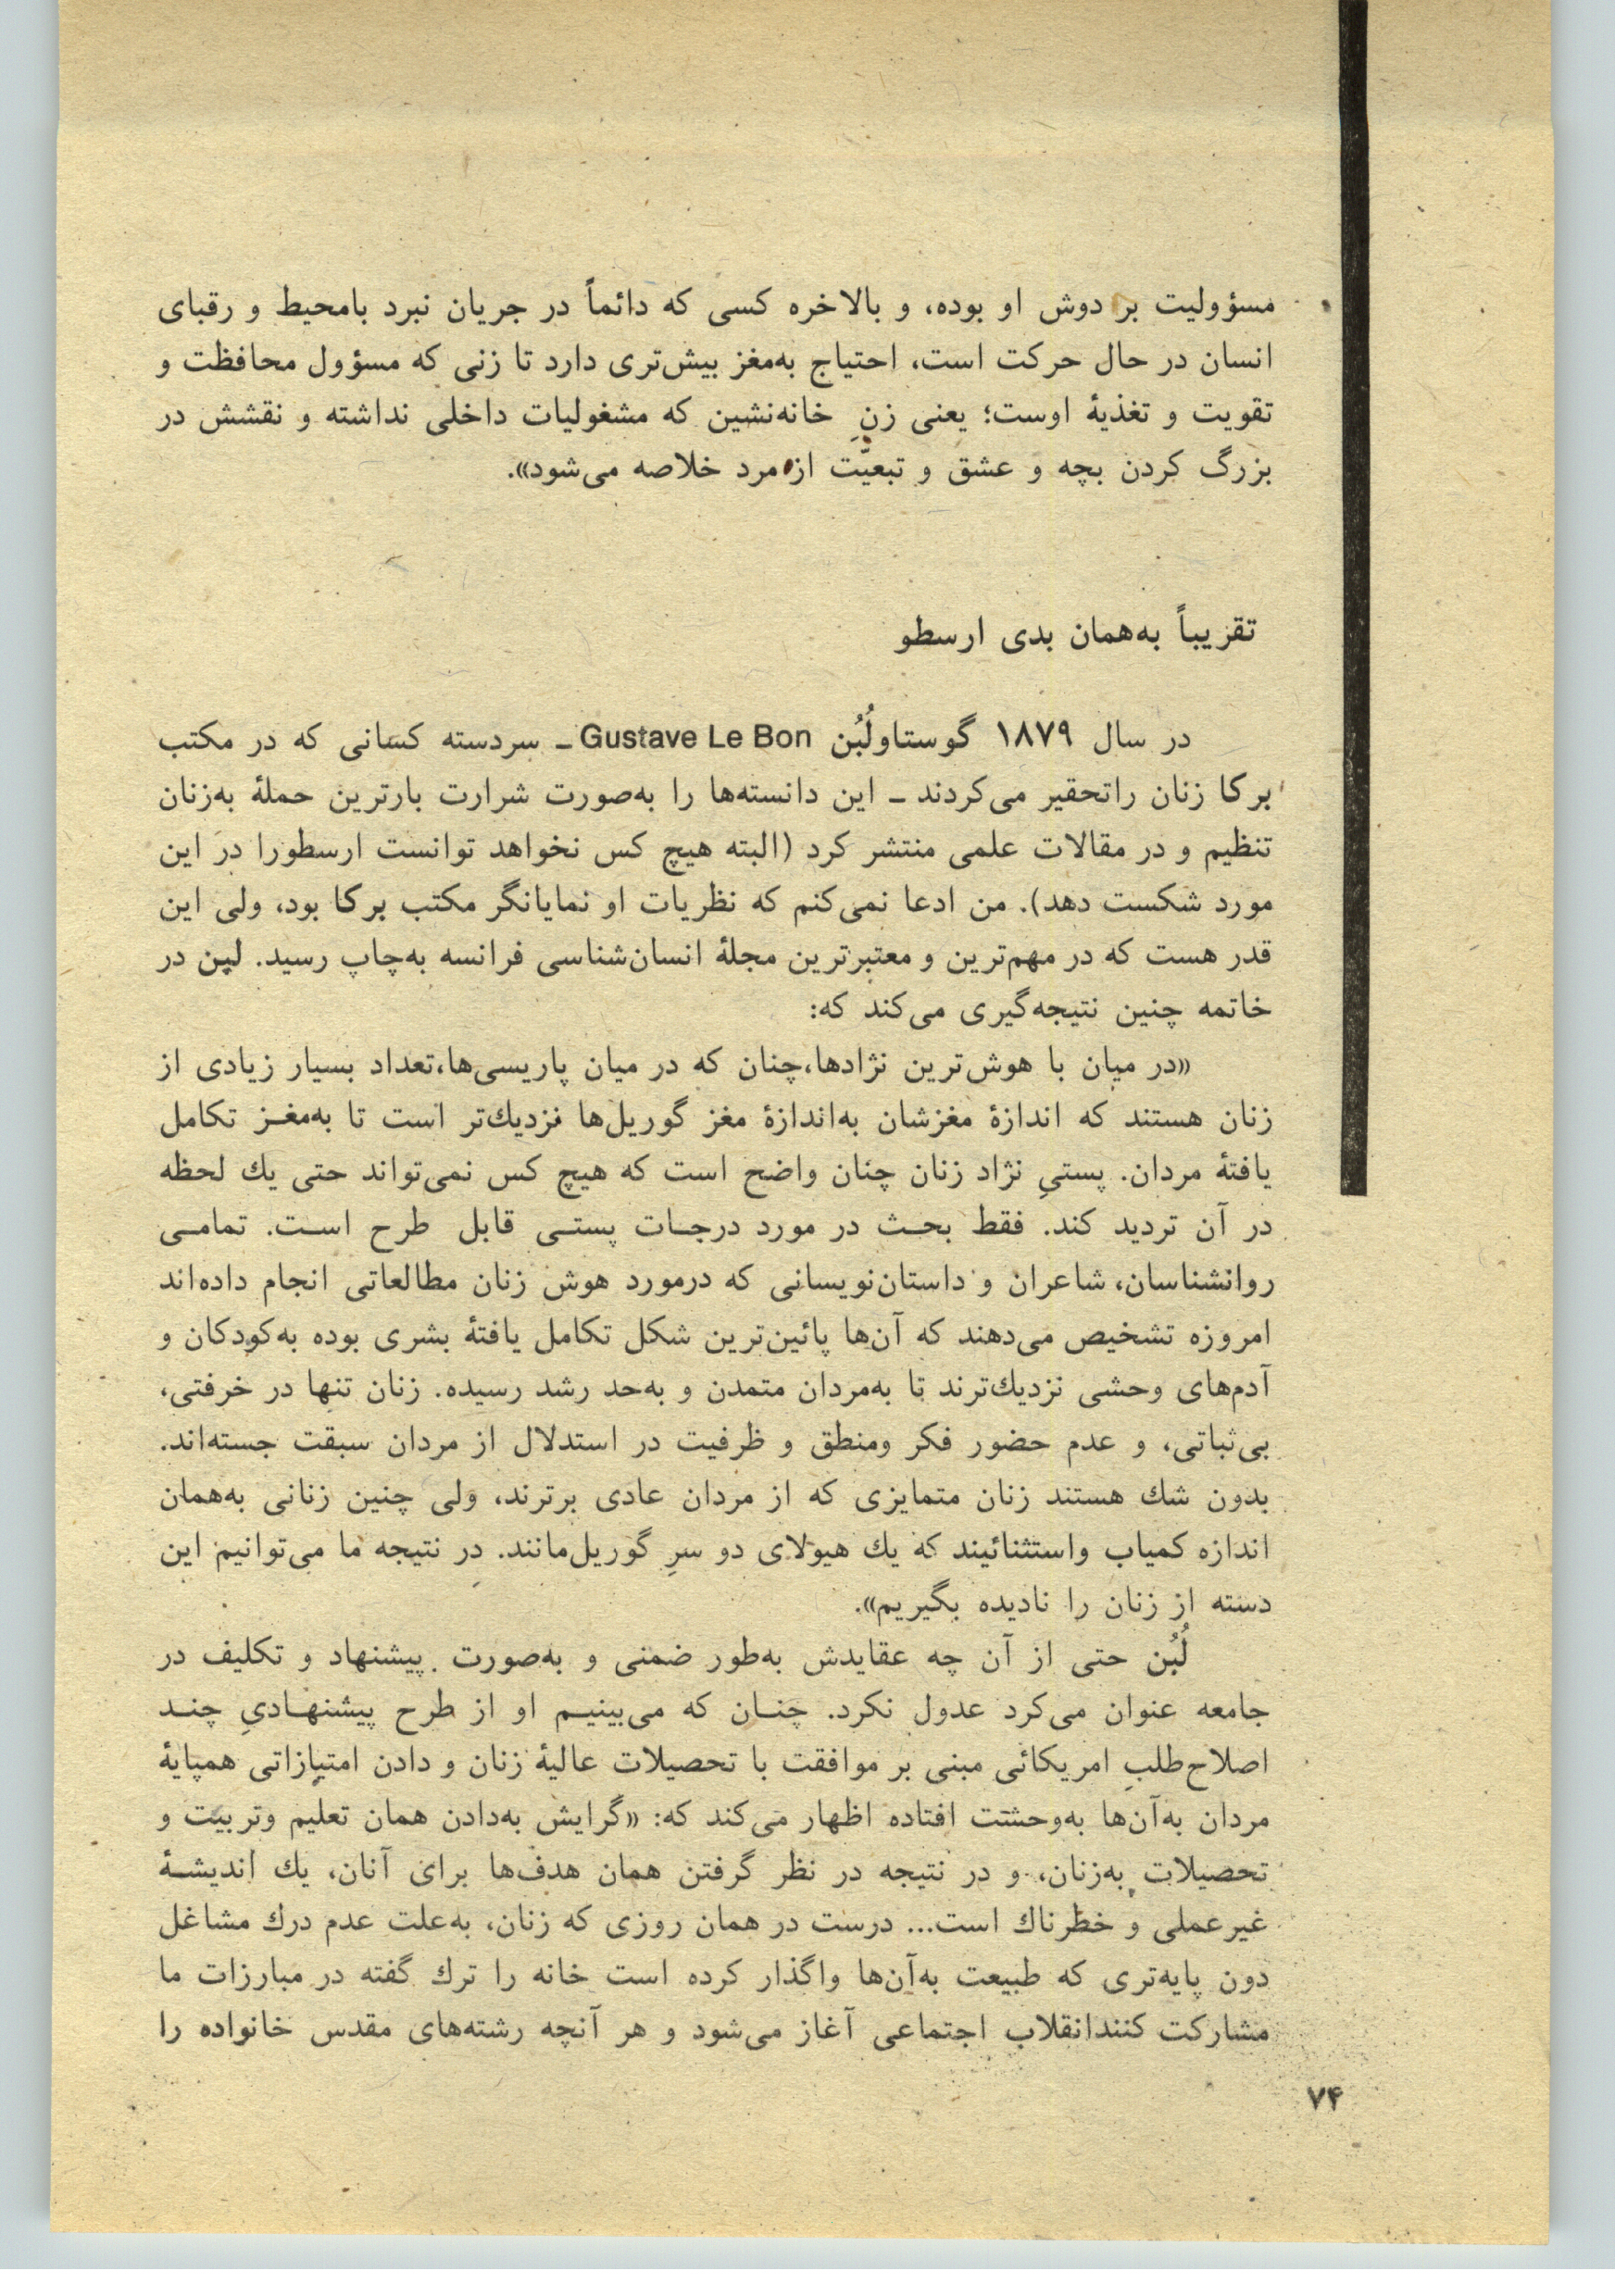 مسؤولیت بر دوش او بوده، و بالاخره کسی که دائماً در جریان نبرد بامحیط و رقبای
انسان در حال حرکت است، احتیاج به‌مغز بیش‌تری دارد تا زنی که مسؤول محافظت و
تقویت و تغذیهٔ اوست؛ یعنی زنِ خانه‌نشین که مشغولیات داخلی نداشته و نقشش در
بزرگ کردن بچه و عشق و تبعیّت از مرد خلاصه می‌شود».
تقریباً به‌همان بدی ارسطو
در سال ۱۸۷۹ گوستاولُبُن Gustave Le Bon ـ سردسته کسانی که در مکتب
برکا زنان راتحقیر می‌کردند ـ این دانسته‌ها را به‌صورت شرارت بارترین حملهٔ به‌زنان
تنظیم و در مقالات علمی منتشر کرد (البته هیچ کس نخواهد توانست ارسطورا در این
مورد شکست دهد). من ادعا نمی‌کنم که نظریات او نمایانگر مکتب برکا بود، ولی این
قدر هست که در مهم‌ترین و معتبرترین مجلهٔ انسان‌شناسی فرانسه به‌چاپ رسید. لبن در
خاتمه چنین نتیجه‌گیری می‌کند که:
«در میان با هوش‌ترین نژادها،چنان که در میان پاریسی‌ها،تعداد بسیار زیادی از
زنان هستند که اندازهٔ مغزشان به‌اندازهٔ مغز گوریل‌ها نزدیك‌تر است تا به‌مغـز تکامل
یافتهٔ مردان. پستیِ نژاد زنان چنان واضح است که هیچ کس نمی‌تواند حتی یك لحظه
در آن تردید کند. فقط بحـث در مورد درجـات پستـی قابل طرح اسـت. تمامـی
روانشناسان، شاعران و داستان‌نویسانی که درمورد هوش زنان مطالعاتی انجام داده‌اند
امروزه تشخیص می‌دهند که آن‌ها پائین‌ترین شکل تکامل یافتهٔ بشری بوده به‌کودکان و
آدم‌های وحشی نزدیك‌ترند تا به‌مردان متمدن و به‌حد رشد رسیده. زنان تنها در خرفتی،
بی‌ثباتی، و عدم حضور فکر ومنطق و ظرفیت در استدلال از مردان سبقت جسته‌اند.
بدون شك هستند زنان متمایزی که از مردان عادی برترند، ولی چنین زنانی به‌همان
اندازه کمیاب واستثنائیند که یك هیولای دو سرِ گوریل‌مانند. در نتیجه ما می‌توانیم این
دسته از زنان را نادیده بگیریم».
لُبُن حتی از آن چه عقایدش به‌طور ضمنی و به‌صورت پیشنهاد و تکلیف در
جامعه عنوان می‌کرد عدول نکرد. چنـان که می‌بینیـم او از طرح پیشنهـادیِ چنـد
اصلاح‌طلبِ امریکائی مبنی بر موافقت با تحصیلات عالیهٔ زنان و دادن امتیازاتی همپایهٔ
مردان به‌آن‌ها به‌وحشت افتاده اظهار می‌کند که: «گرایش به‌دادن همان تعلیم وتربیت و
تحصیلات به‌زنان، و در نتیجه در نظر گرفتن همان هدف‌ها برای آنان، یك اندیشـهٔ
غیرعملی و خطرناك است... درست در همان روزی که زنان، به‌علت عدم درك مشاغل
دون پایه‌تری که طبیعت به‌آن‌ها واگذار کرده است خانه را ترك گفته در مبارزات ما
مشارکت کنندانقلاب اجتماعی آغاز می‌شود و هر آنچه رشته‌های مقدس خانواده را
۷۴